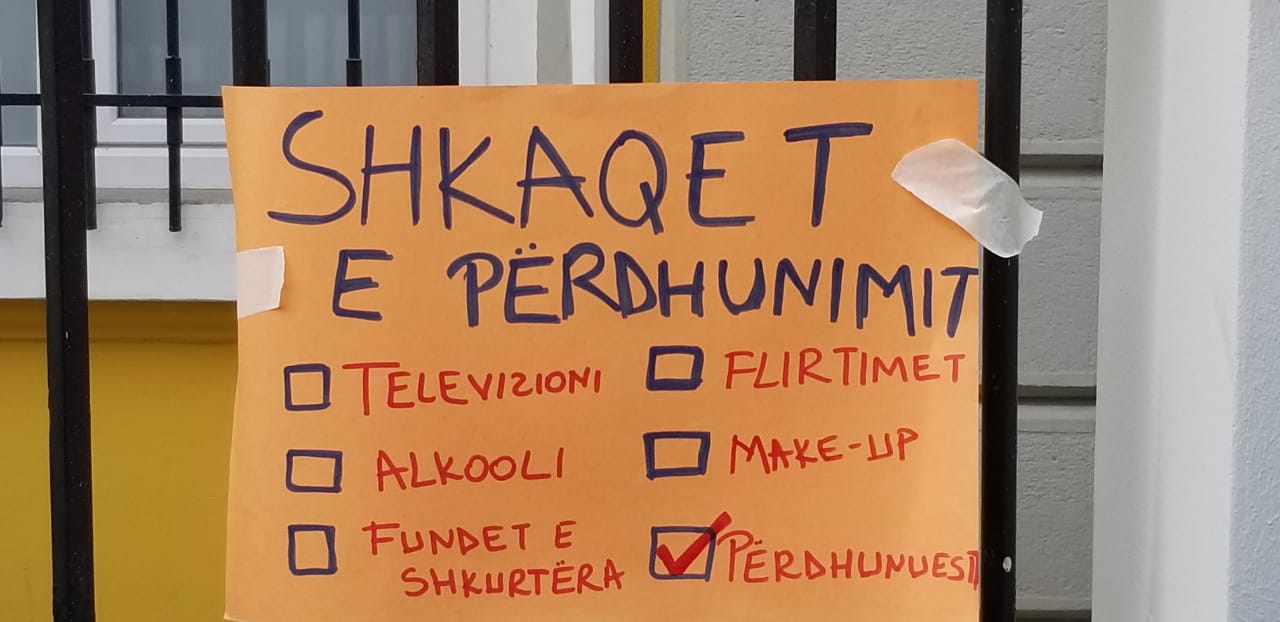 SHKAQET
E PËRDHUNIMIT
TELEVIZIONI
ALKOOLI
FUNDET E
SHKURTËRA
FLIRTIMET
MAKE-UP
PËRDHUNUESI